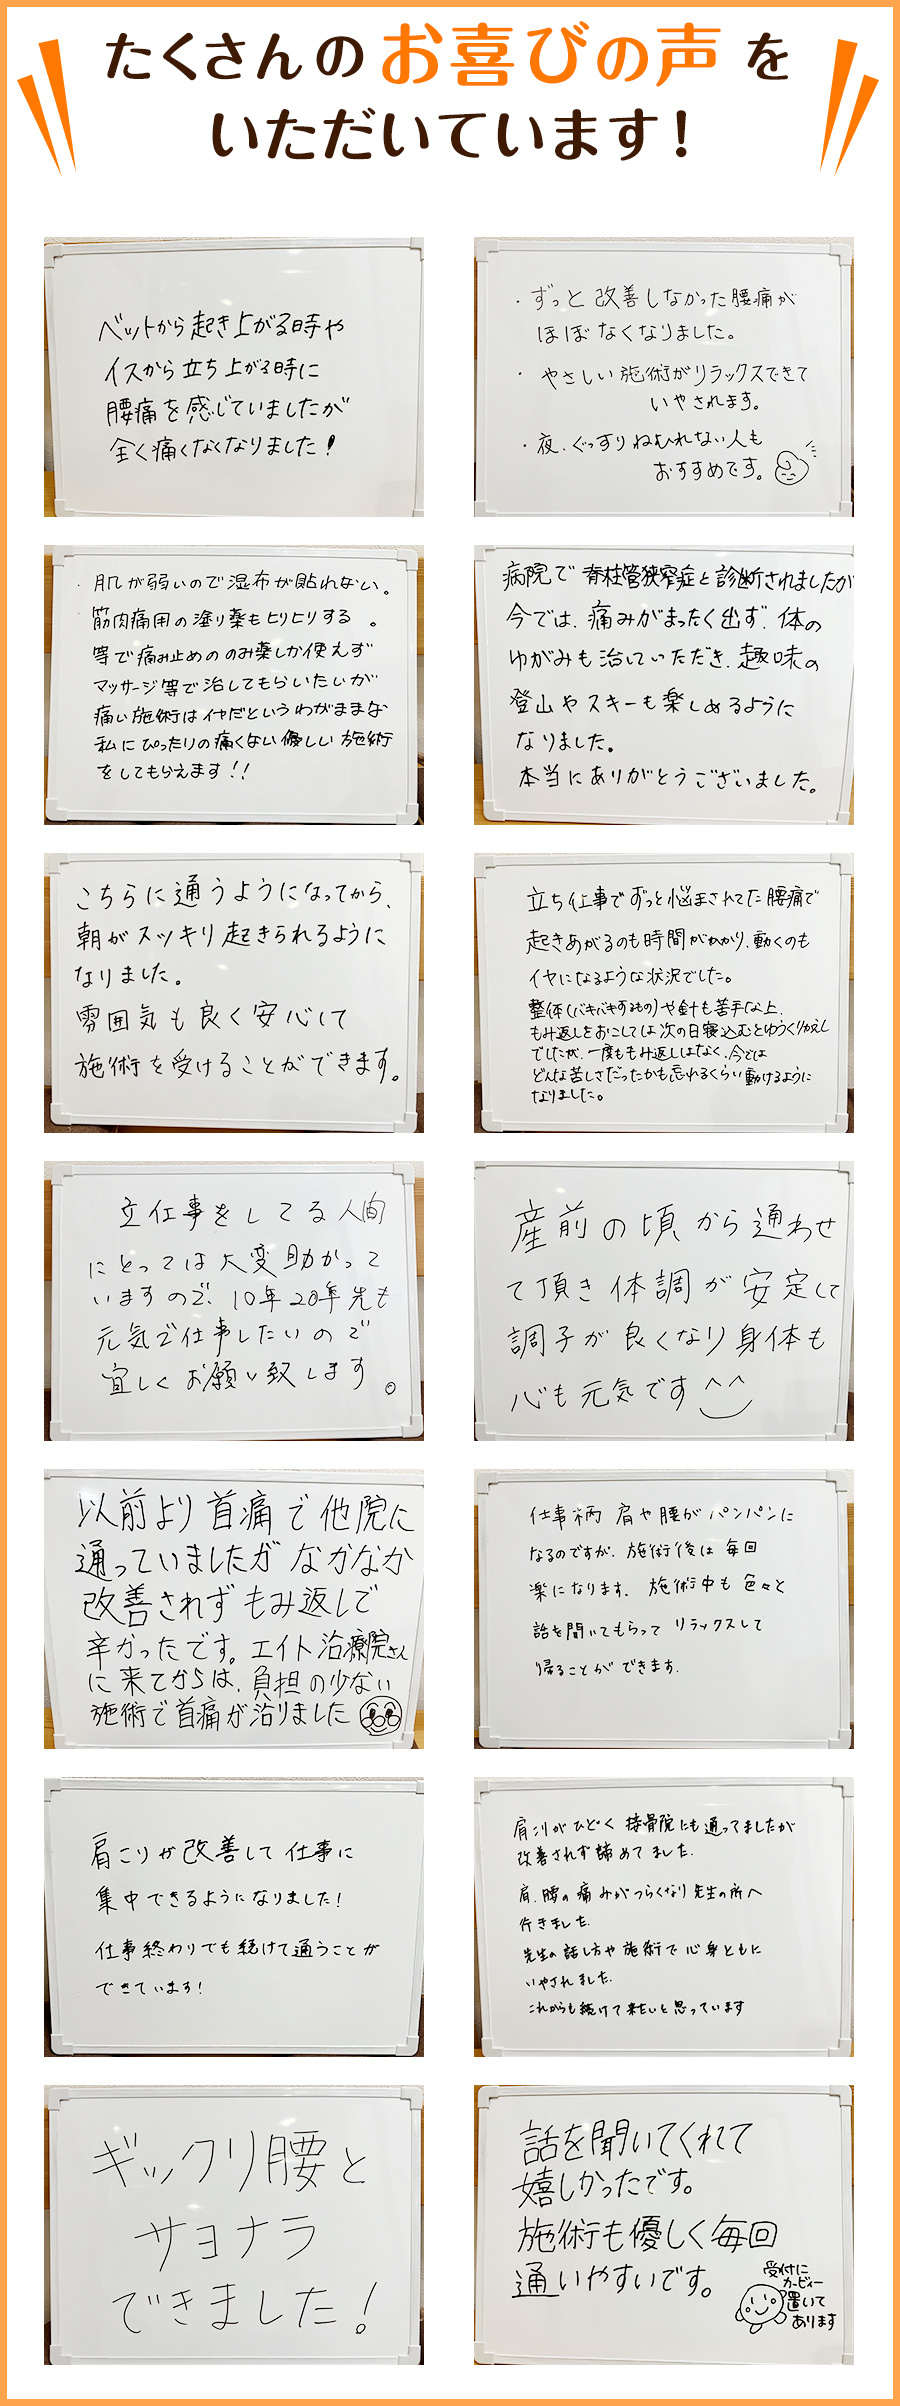 たくさんのお喜びの声を
いただいています!
ベットから起き上がる時や
イスから立ち上がる時に
腰痛を感じていましたが
全く痛くなくなりました!
・ずっと改善しなかった腰痛が
ほぼなくなりました。
・やさしい施術がリラックスできて
いやされます。
・夜、ぐっすりねむれない人も
おすすめです。
・肌が弱いので湿布が貼れない。
筋肉痛用の塗り薬もヒリヒリする。
等で痛み止めののみ薬しか使えず
マッサージ等で治してもらいたいが
痛い施術はイヤだというわがままな
私にぴったりの痛くない優しい施術
をしてもらえます!!
病院で脊柱管狭窄症と診断されましたが
今では、痛みがまったく出ず、体の
ゆがみも治していただき、趣味の
登山やスキーも楽しめるように
なりました。
本当にありがとうございました。
こちらに通うようになってから、
朝がスッキリ起きられるように
なりました。
雰囲気も良く安心して
施術を受けることができます。
立ち仕事でずっと悩まされてた腰痛で
起きあがるのも時間がかかり、動くのも
イヤになるような状況でした。
整体(バキバキするもの)や針も苦手な上、
もみ返しをおこしては次の日寝込むとゆうくりかえし
でしたが、一度ももみ返しはなく、今では
どんな苦しさだったかも忘れるくらい動けるように
なりました。
立仕事をしてる人間
にとっては大変助かって
いますので、10年20年先も
元気で仕事したいので
宜しくお願い致します。
産前の頃から通わせ
て頂き体調が安定して
調子が良くなり身体も
心も元気です^^
以前より首痛で他院に
通っていましたがなかなか
改善されずもみ返しで
辛かったです。エイト治療院さん
に来てからは、負担の少ない
施術で首痛が治りました
仕事柄肩や腰がパンパンに
なるのですが、施術後は毎回
楽になります、施術中も色々と
話を聞いてもらってリラックスして
帰ることができます.
肩こりが改善して仕事に
集中できるようになりました!
仕事終わりでも続けて通うことが
できています!
肩こりがひどく接骨院にも通ってましたが
改善されず諦めてました.
肩、腰の痛みがつらくなり先生の所へ
行きました.
先生の話し方や施術で心身ともに
いやされました.
これからも続けて来たいと思っています
ギックリ腰と
サヨナラ
できました!
話を聞いてくれて
嬉しかったです。
施術も優しく毎回
通いやすいです。
受付に
カービィー
置いて
あります